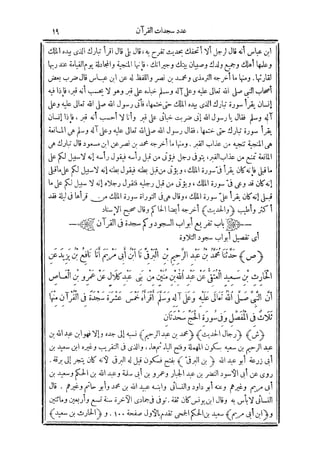 عدد سجدات القرآن ١٩
ابن عباس أنه قال لرجل ألا أتحفك بحديث تفرح به، قال بلى قال اقرأ تبارك الذى بيده الملك
وعلمها أهلك وجميع ولدك وصبيان بيتك وجيرانك، فإنها المنجية والمجادلة يوم القيامة عند ربها
لقارئها. ومنها ما أخرجه الترمذى ومحمد بن نصر واللفظ له عن ابن عباس قال ضرب بعض
أصحاب النبى صلى الله تعالى عليه وعلى آله وسلم خباءه على قبر وهو لا يحسب أنه قبر، فإذا فيه
إنسان يقرأ سورة تبارك الذى بيده الملك حتى ختمها، فأتى رسول الله صلى الله تعالى عليه وعلى
آله وسلم فقال يا رسول الله إنى ضربت خبائى على قبر وأنا لا أحسب أنه قبر، فإذا إنسان
يقرأ سورة تبارك حتى ختمها، فقال رسول الله صلى الله تعالى عليه وعلى آله وسلم هى المانعة
هى المنجية تنجيه من عذاب القبر. ومنها ما أخرجه محمد بن نصر عن ابن مسعود قال تبارك هى
المانعة تمنع من عذاب القبر، يتوفى رجل فيؤتى من قبل رأسه فيقول رأسه إنه لا سبيل لكم على
ما قبلى فإنه كان يقرأ فىّ سورة الملك، ويؤتى من قبل بطنه فيقول بطنه إنه لا سبيل لكم على ما قبلى
إنه كان قد وعى فىّ سورة الملك، ويؤتى من قبل رجليه فيقول رجلاه إنه لا سبيل لكم على ما
قبلى إنه كان يقرأ علىّ سورة الملك، وقال هى فى التوراة سورة الملك من قرأها فى ليلة فقد
أكثر وأطيب ﴿والحديث﴾ أخرجه أيضا الحاكم وقال صحيح الإسناد
باب تفريع أبواب السجود وكم سجدة فى القرآن
أى تفصيل أبواب سجود التلاوة
﴿ص﴾ حَدَّثَنَا مُحَمَّدُ بْنُ عَبْدِ الرَّحِيمِ بْنِ الْبَرْقِىِّ نَا ابْنُ أَبِى مَرْيَمَ أَنَا نَافِعُ بْنُ يَزِيدَ عَنِ
الْحَارِثِ بْنِ سَعِيدٍ الْعُتَقِىِّ عَنْ عَبْدِ اللهِ بْنِ مُنَيْنٍ مِنْ بَنِى عَبْدِ كُلَالٍ عَنْ عَمْرِو بْنِ الْعَاصِ
أَنَّ النَّبِىَّ صَلَّى اللهُ تَعَالَى عَلَيْهِ وَعَلَى آلِهِ وَسَلَّمَ أَقْرَأَهُ خَمْسَ عَشْرَةَ سَجْدَةً فِى الْقُرْآنِ مِنْهَا
ثَلَاثٌ فِى الْمُفَصَّلِ وَفِى سُورَةِ الْحَجِّ سَجْدَتَانِ
﴿ش﴾ ﴿رجال الحديث﴾ ﴿محمد بن عبد الرحيم﴾ نسبة إلى جده وإلا فهو ابن عبد الله بن
عبد الرحيم بن سعيه بسكون المهملة وفتح المثناة بعدها. والذى فى التقريب وغيره ابن سعيد بن
أبى زرعة أبو عبد الله ﴿بن البرقى﴾ بفتح فسكون قيل له البرقى لأنه كان يتجر إلى برقة.
روى عن أبى الأسود النضر بن عبد الجبار وعمرو بن أبى سلمة وعبد الله بن الحكم وسعيد بن
أبى مريم وغيرهم. وعنه أبو داود والنسائى وابنه عبيد الله بن محمد وأبو حاتم وغيرهم. قال
النسائى لا بأس به وقال ابن يونس كان ثقة. توفى فى جمادى الآخرة سنة تسع وأربعين ومائتين
و﴿ابن أبى مريم﴾ سعيد بن الحكم الجمحى تقدم بالأول صفحة ١٠٠. و﴿الحارث بن سعيد﴾